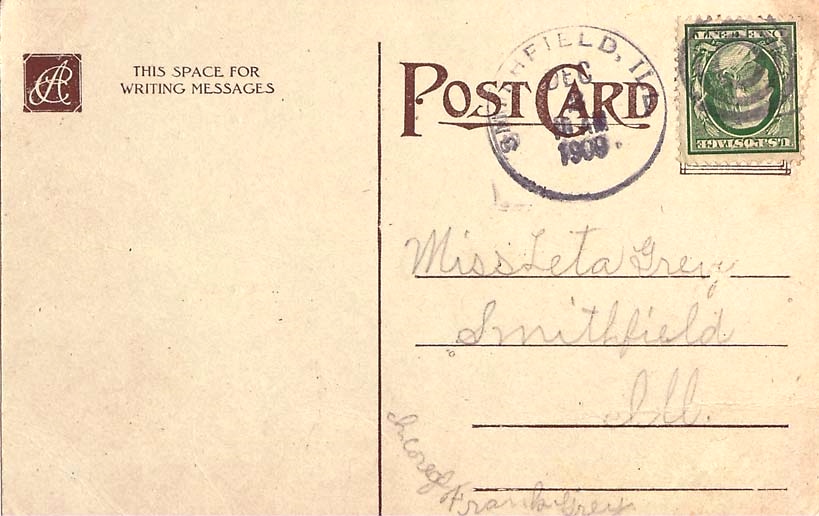 THIS SPACE FOR
WRITING MESSAGES
POST CARD
SMITHFIELD, ILL
DEC
AM
1909
ONE CENT
U.S.POSTAGE
Miss Leta Grey
Smithfield
Ill.
In care of
Frank Grey